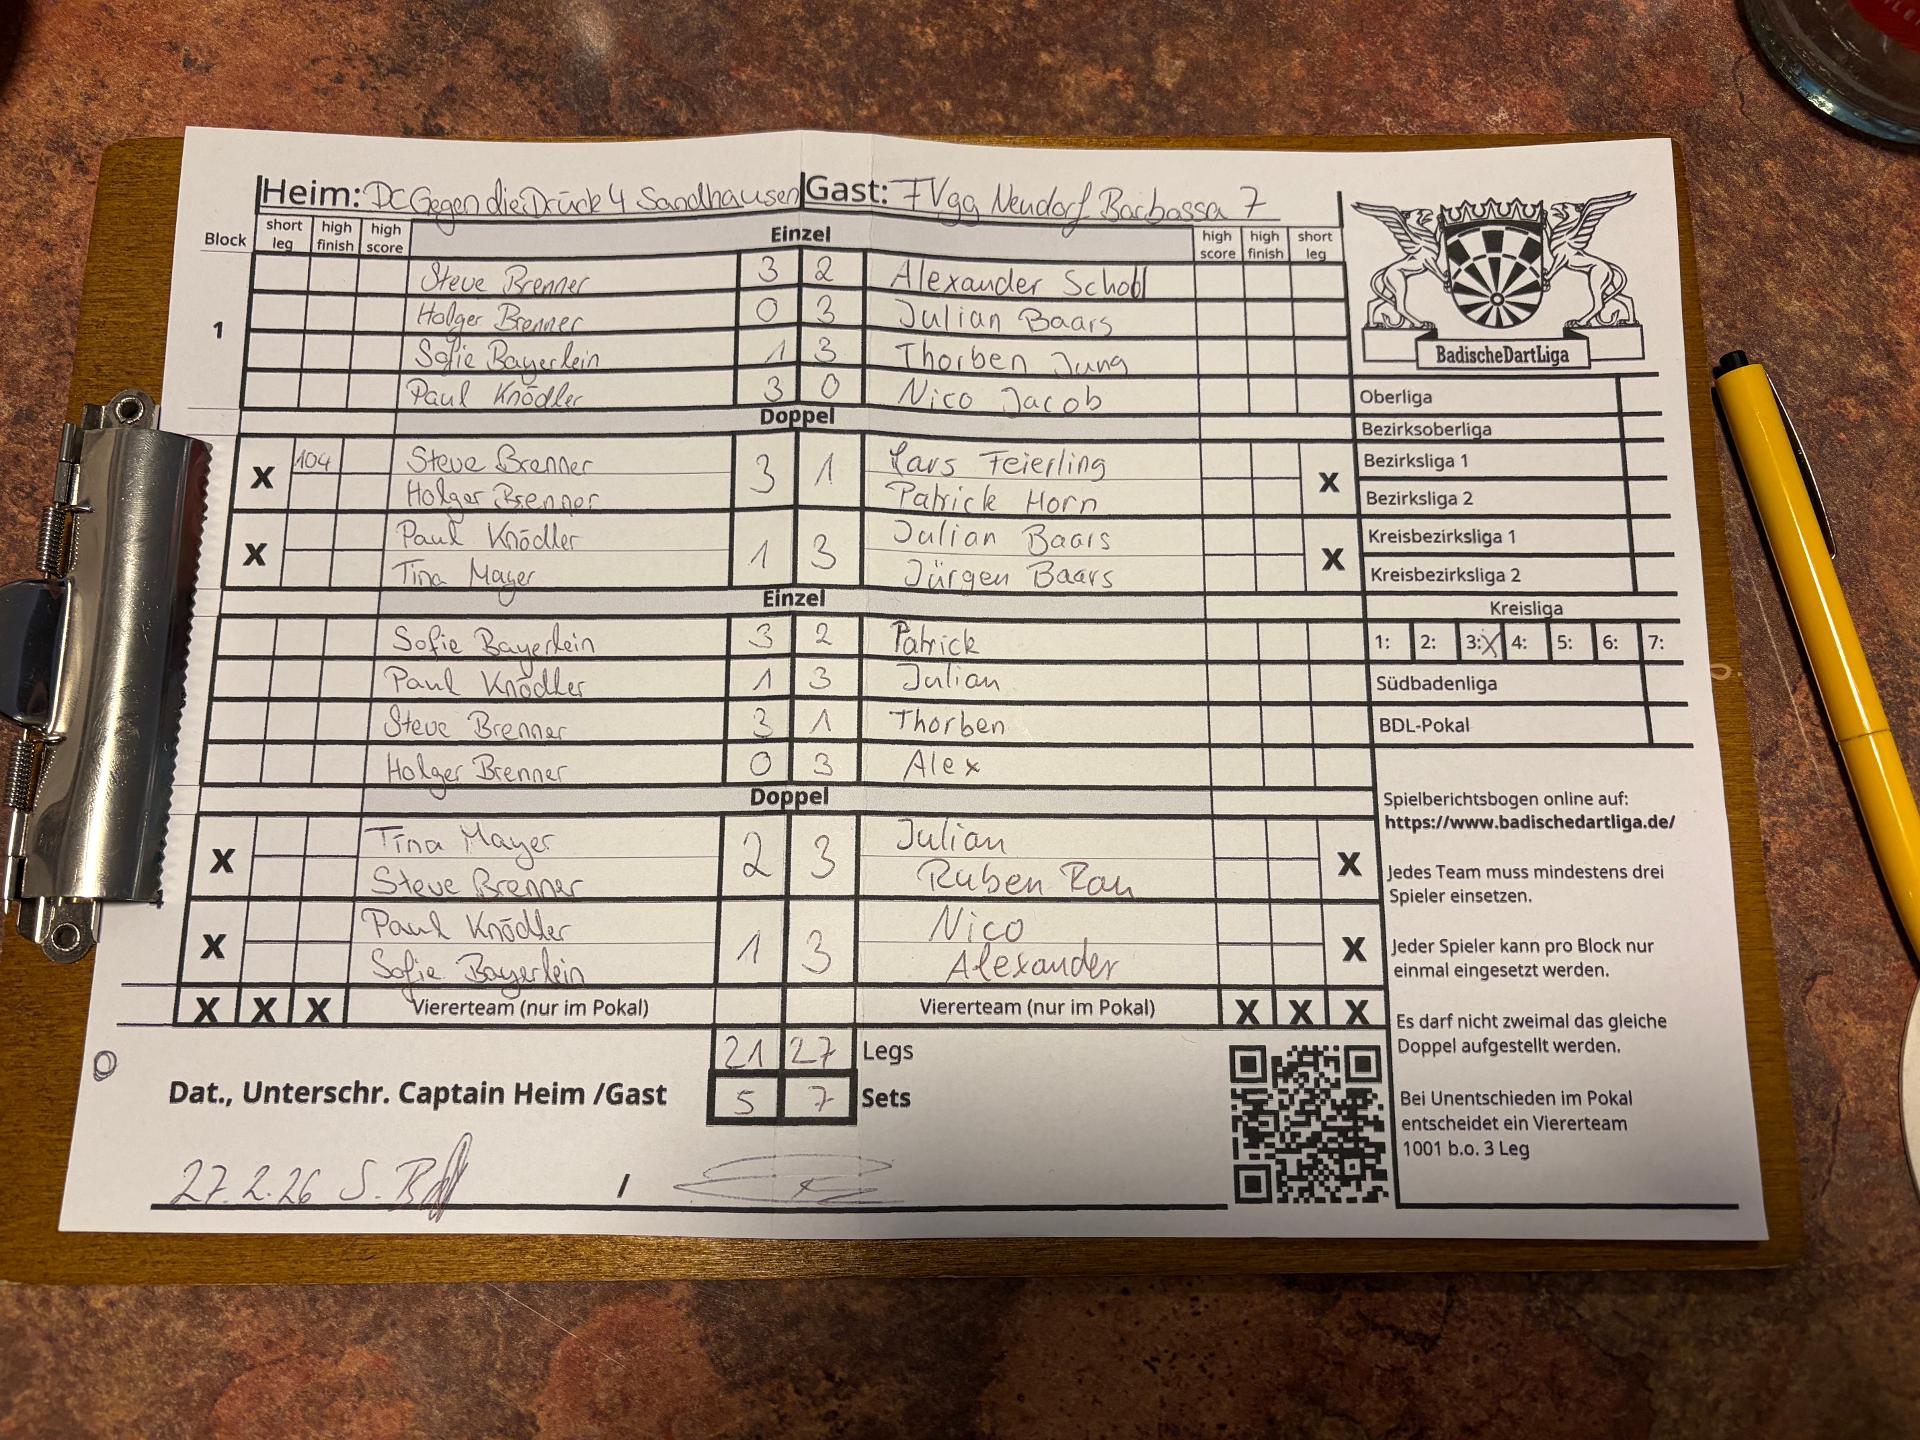 Heim: DC Gegen die Drück 4 Sandhausen Gast: FVgg Neudorf Barbossa 7
Block short leg high finish high score Einzel high score high finish short leg
Steve Brenner 3 2 Alexander Scholl
1 Holger Brenner 0 3 Julian Baars
Sofie Bayerlein 1 3 Thorben Jung
Paul Knödler 3 0 Nico Jacob
Doppel
X 104 Steve Brenner 3 1 Lars Feierling X
Holger Brenner Patrick Horn
X Paul Knödler 1 3 Julian Baars X
Tina Mayer Jürgen Baars
Einzel
Sofie Bayerlein 3 2 Patrick
Paul Knödler 1 3 Julian
Steve Brenner 3 1 Thorben
Holger Brenner 0 3 Alex
Doppel
X Tina Mayer 2 3 Julian X
Steve Brenner Ruben Rau
X Paul Knödler 1 3 Nico X
Sofie Bayerlein Alexander
X X X Viererteam (nur im Pokal) Viererteam (nur im Pokal) X X X
21 27 Legs
5 7 Sets
Dat., Unterschr. Captain Heim /Gast
27.2.26 S. /
BadischeDartLiga
Oberliga
Bezirksoberliga
Bezirksliga 1
Bezirksliga 2
Kreisbezirksliga 1
Kreisbezirksliga 2
Kreisliga
1: 2: 3: X 4: 5: 6: 7:
Südbadenliga
BDL-Pokal
Spielberichtsbogen online auf:
https://www.badischedartliga.de/
Jedes Team muss mindestens drei
Spieler einsetzen.
Jeder Spieler kann pro Block nur
einmal eingesetzt werden.
Es darf nicht zweimal das gleiche
Doppel aufgestellt werden.
Bei Unentschieden im Pokal
entscheidet ein Viererteam
1001 b.o. 3 Leg